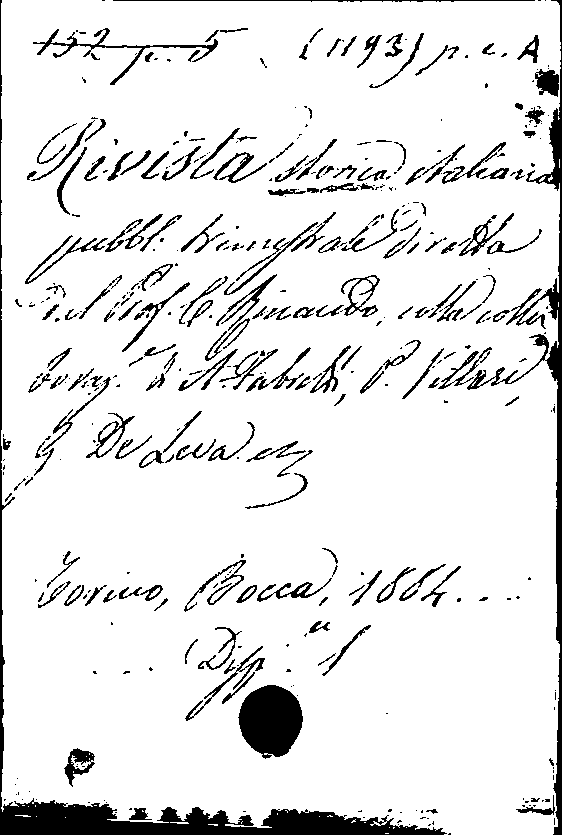 152 p. 5 (1193) p. c. A
Rivista storica italiana
pubbl. trimestrale diretta
dal Prof. C. Rinaudo, colla colla
boraz.e di A. Fabretti, P. Villari,
G. De Leva ecc
Torino, Bocca, 1884....
... (Disp.a 1